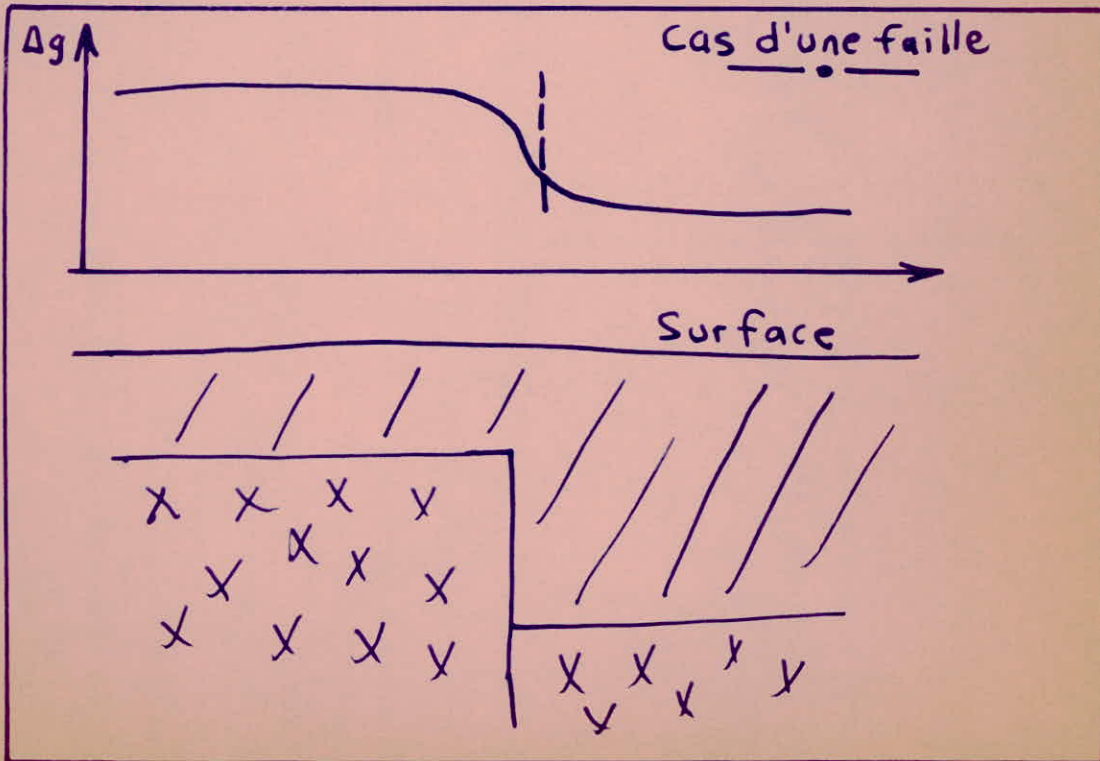 Δg
Cas d'une faille
Surface